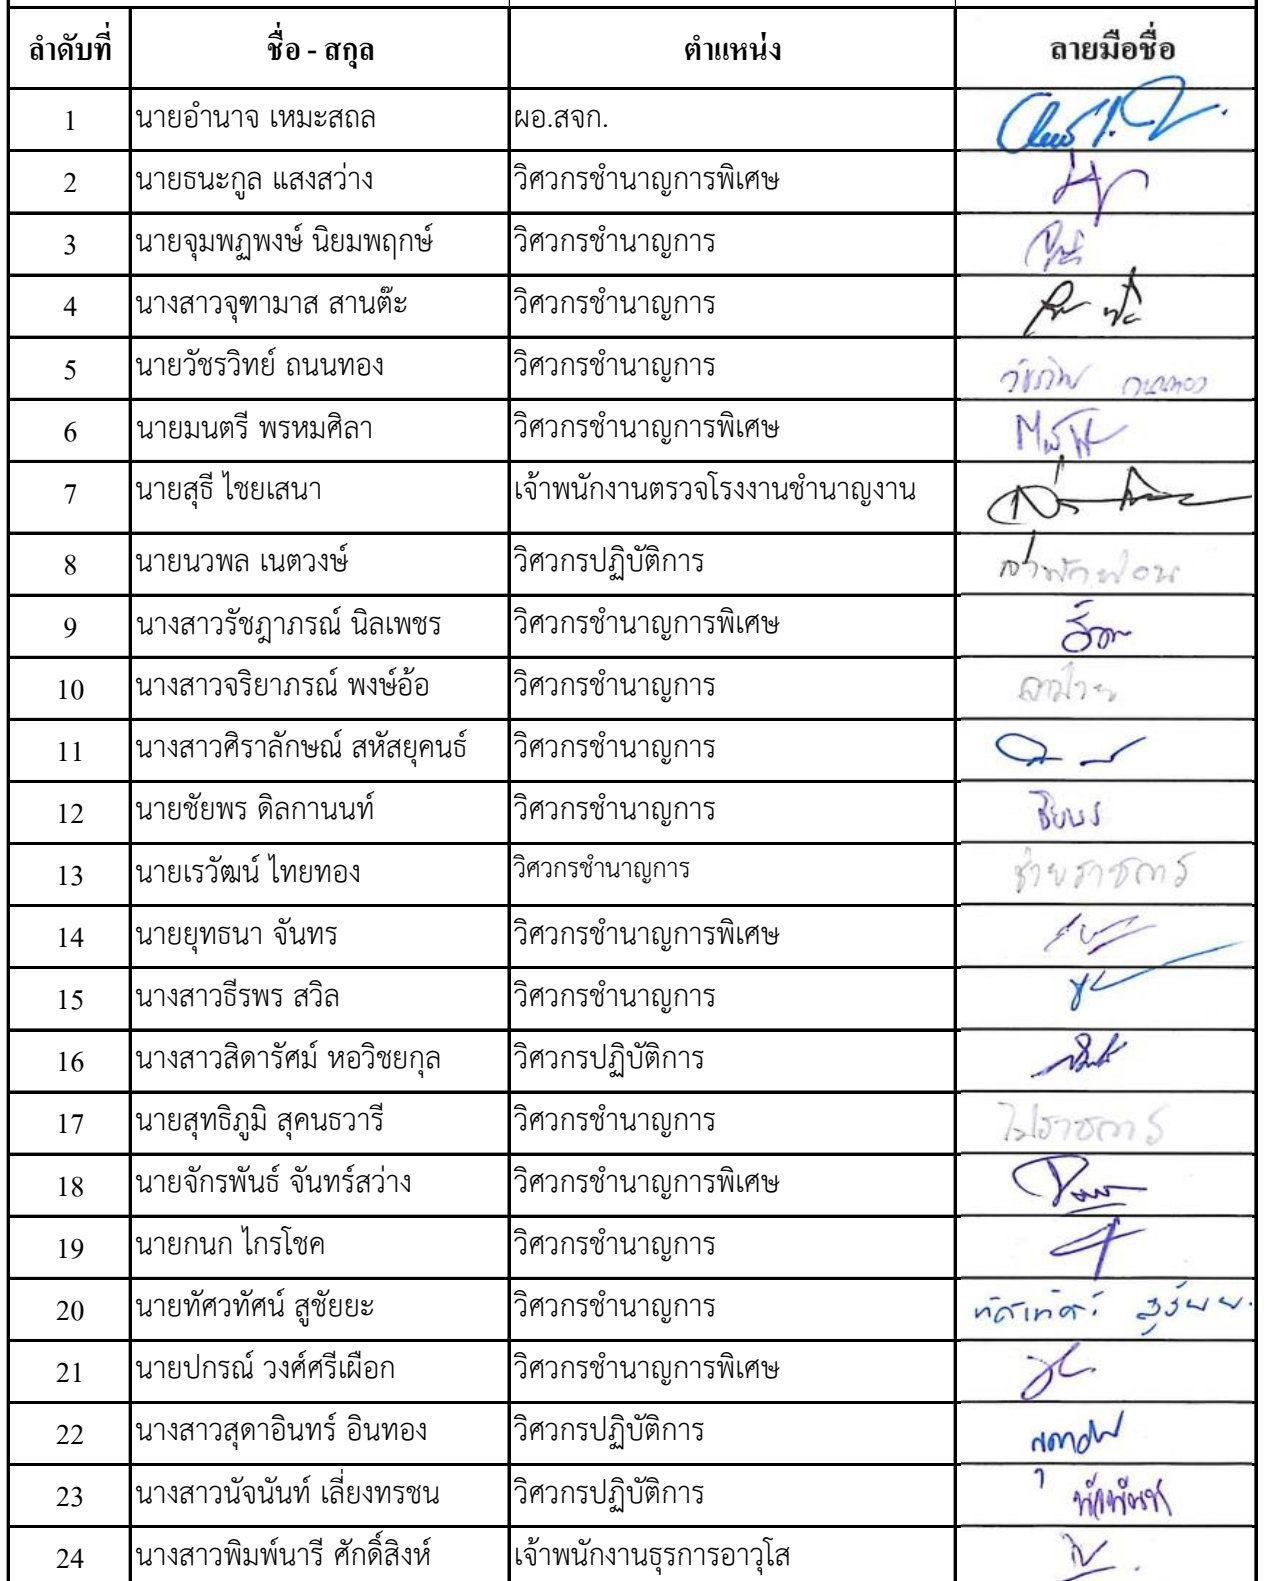 ลำดับที่ ชื่อ - สกุล ตำแหน่ง ลายมือชื่อ
1 นายอำนาจ เหมะสถล ผอ.สจก.
2 นายธนะกูล แสงสว่าง วิศวกรชำนาญการพิเศษ
3 นายจุมพฏพงษ์ นิยมพฤกษ์ วิศวกรชำนาญการ
4 นางสาวจุฑามาส สานต๊ะ วิศวกรชำนาญการ
5 นายวัชรวิทย์ ถนนทอง วิศวกรชำนาญการ
6 นายมนตรี พรหมศิลา วิศวกรชำนาญการพิเศษ
7 นายสุธี ไชยเสนา เจ้าพนักงานตรวจโรงงานชำนาญงาน
8 นายนวพล เนตวงษ์ วิศวกรปฏิบัติการ ลาพักผ่อน
9 นางสาวรัชฎาภรณ์ นิลเพชร วิศวกรชำนาญการพิเศษ
10 นางสาวจริยาภรณ์ พงษ์อ้อ วิศวกรชำนาญการ ลาป่วย
11 นางสาวศิราลักษณ์ สหัสยุคนธ์ วิศวกรชำนาญการ
12 นายชัยพร ดิลกานนท์ วิศวกรชำนาญการ ชัยพร
13 นายเรวัฒน์ ไทยทอง วิศวกรชำนาญการ ช่วยราชการ
14 นายยุทธนา จันทร วิศวกรชำนาญการพิเศษ
15 นางสาวธีรพร สวิล วิศวกรชำนาญการ
16 นางสาวสิดารัศม์ หอวิชยกุล วิศวกรปฏิบัติการ
17 นายสุทธิภูมิ สุคนธวารี วิศวกรชำนาญการ ไปราชการ
18 นายจักรพันธ์ จันทร์สว่าง วิศวกรชำนาญการพิเศษ
19 นายกนก ไกรโชค วิศวกรชำนาญการ
20 นายทัศวทัศน์ สูชัยยะ วิศวกรชำนาญการ
21 นายปกรณ์ วงศ์ศรีเผือก วิศวกรชำนาญการพิเศษ
22 นางสาวสุดาอินทร์ อินทอง วิศวกรปฏิบัติการ
23 นางสาวนัจนันท์ เลี่ยงทรชน วิศวกรปฏิบัติการ
24 นางสาวพิมพ์นารี ศักดิ์สิงห์ เจ้าพนักงานธุรการอาวุโส